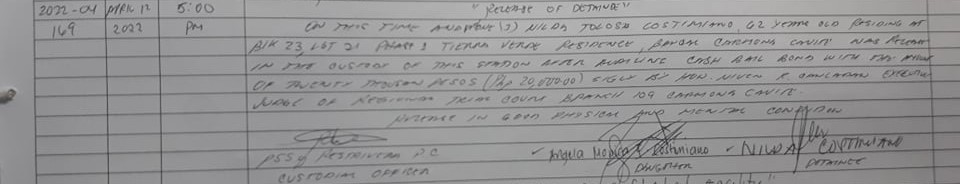 2022-04 APRIL 12 5:00 "RELEASE OF DETAINEE"
169 2022 PM ON THIS TIME AND DATE (3) NILDA TOLOSA COSTIMIANO, 62 YEARS OLD RESIDING AT
BLK 23 LOT 21 PHASE 2 TIERRA VERDE RESIDENCE, CARMONA CAVITE WAS RELEASE
IN THE CUSTODY OF THIS STATION AFTER CASH BAIL BOND WITH THE AMOUNT
OF TWENTY THOUSAN PESOS (Php 20,000.00) SIGN BY HON. EXECUTIVE
JUDGE OF REGIONAL TRIAL COURT BRANCH 109 CARMONA CAVITE.
RELEASE IN GOOD PHYSICAL AND MENTAL CONDITION
PSSg P.C Angela Monica Costimiano NILDA COSTIMIANO
CUSTODIAL OFFICER DAUGHTER DETAINEE